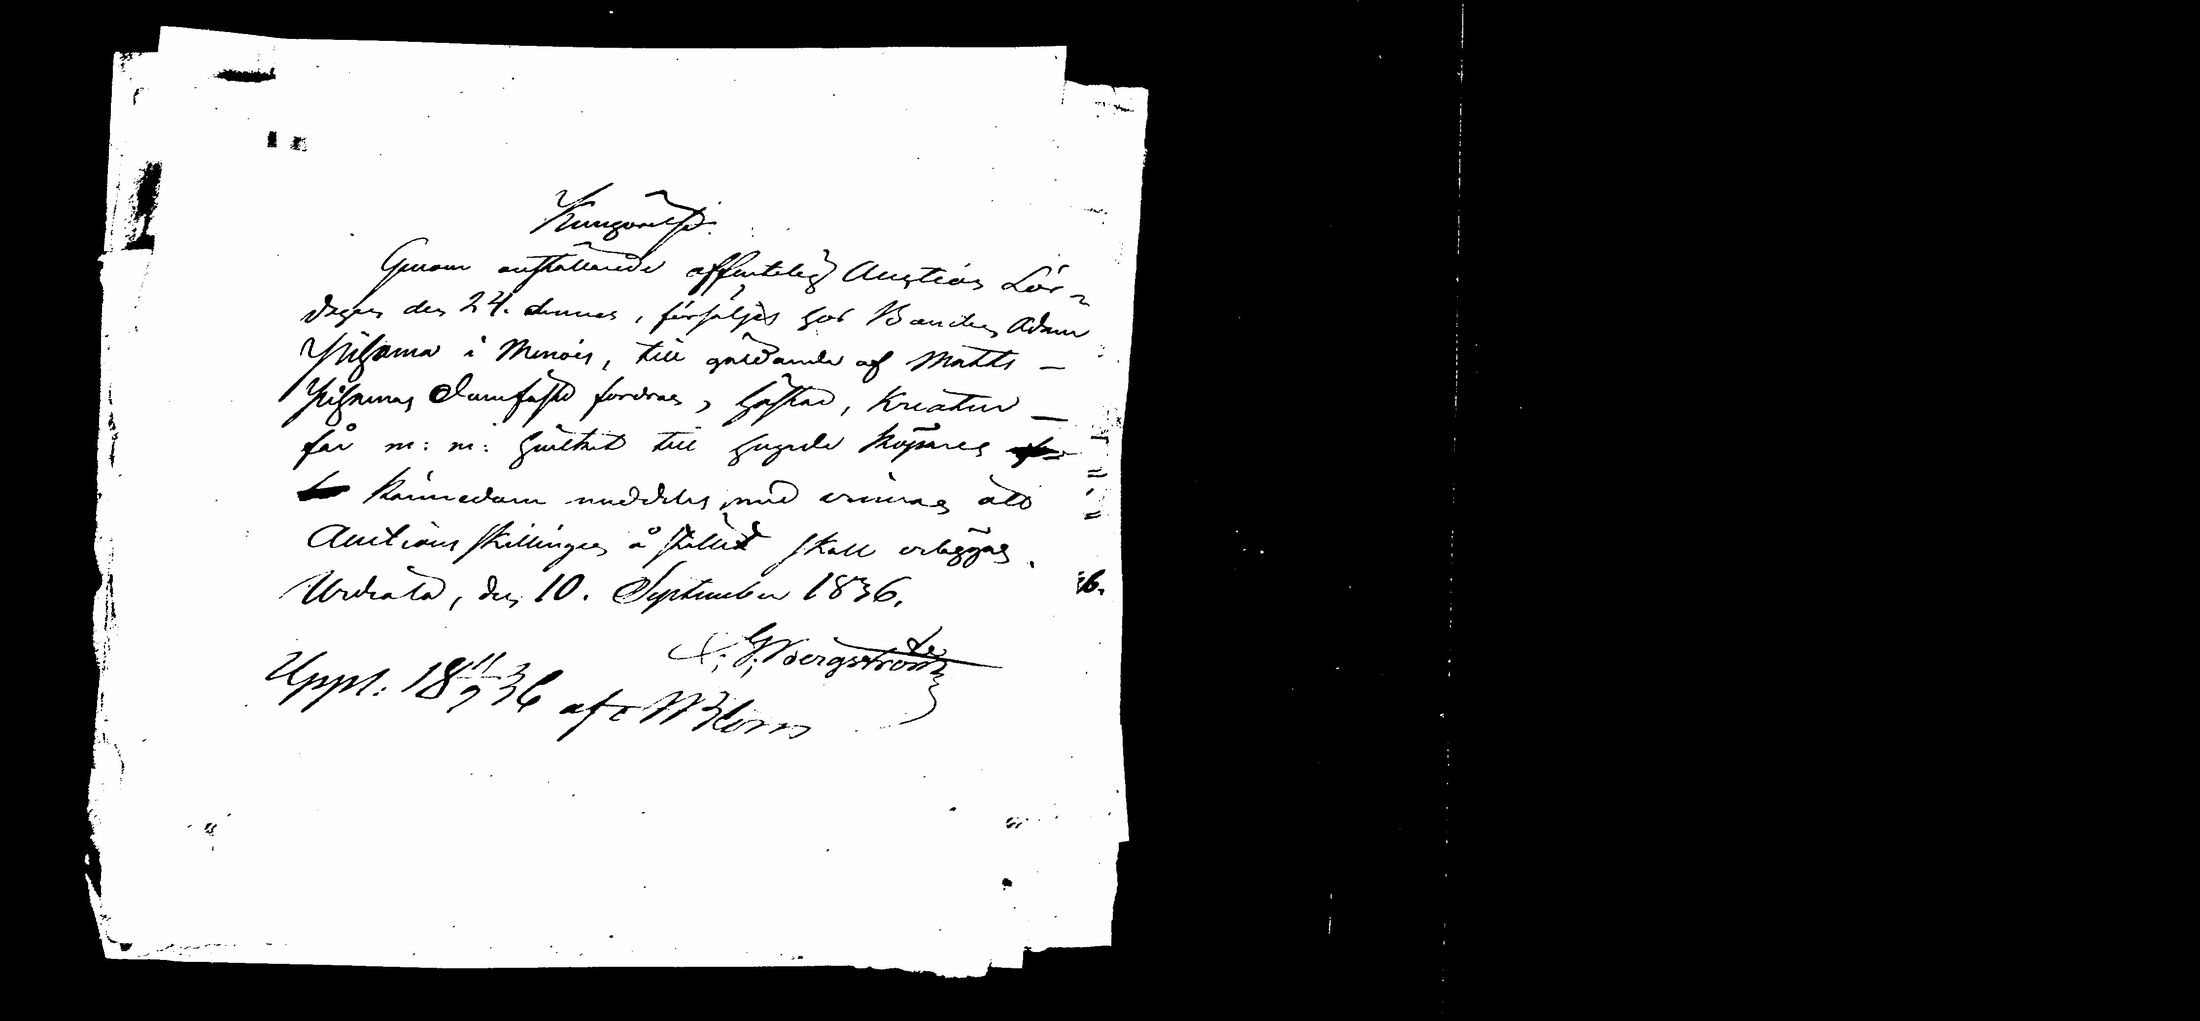 Kungörelse.
Genom anställande offentelig Auction Lör-
dagen den 24. dennes, försäljes hos Bonden Adam
i Menois, till gäldande af Matts
fordran, hästar, Kreatur
får m: m: hvilket till hugade köpares
kännedom meddeles, med erinran att
Auctions skillingen å stället skall erläggas.
Urdiala, den 10. September 1836.
G: Bergström
Uppl: 18 11/9 36 af